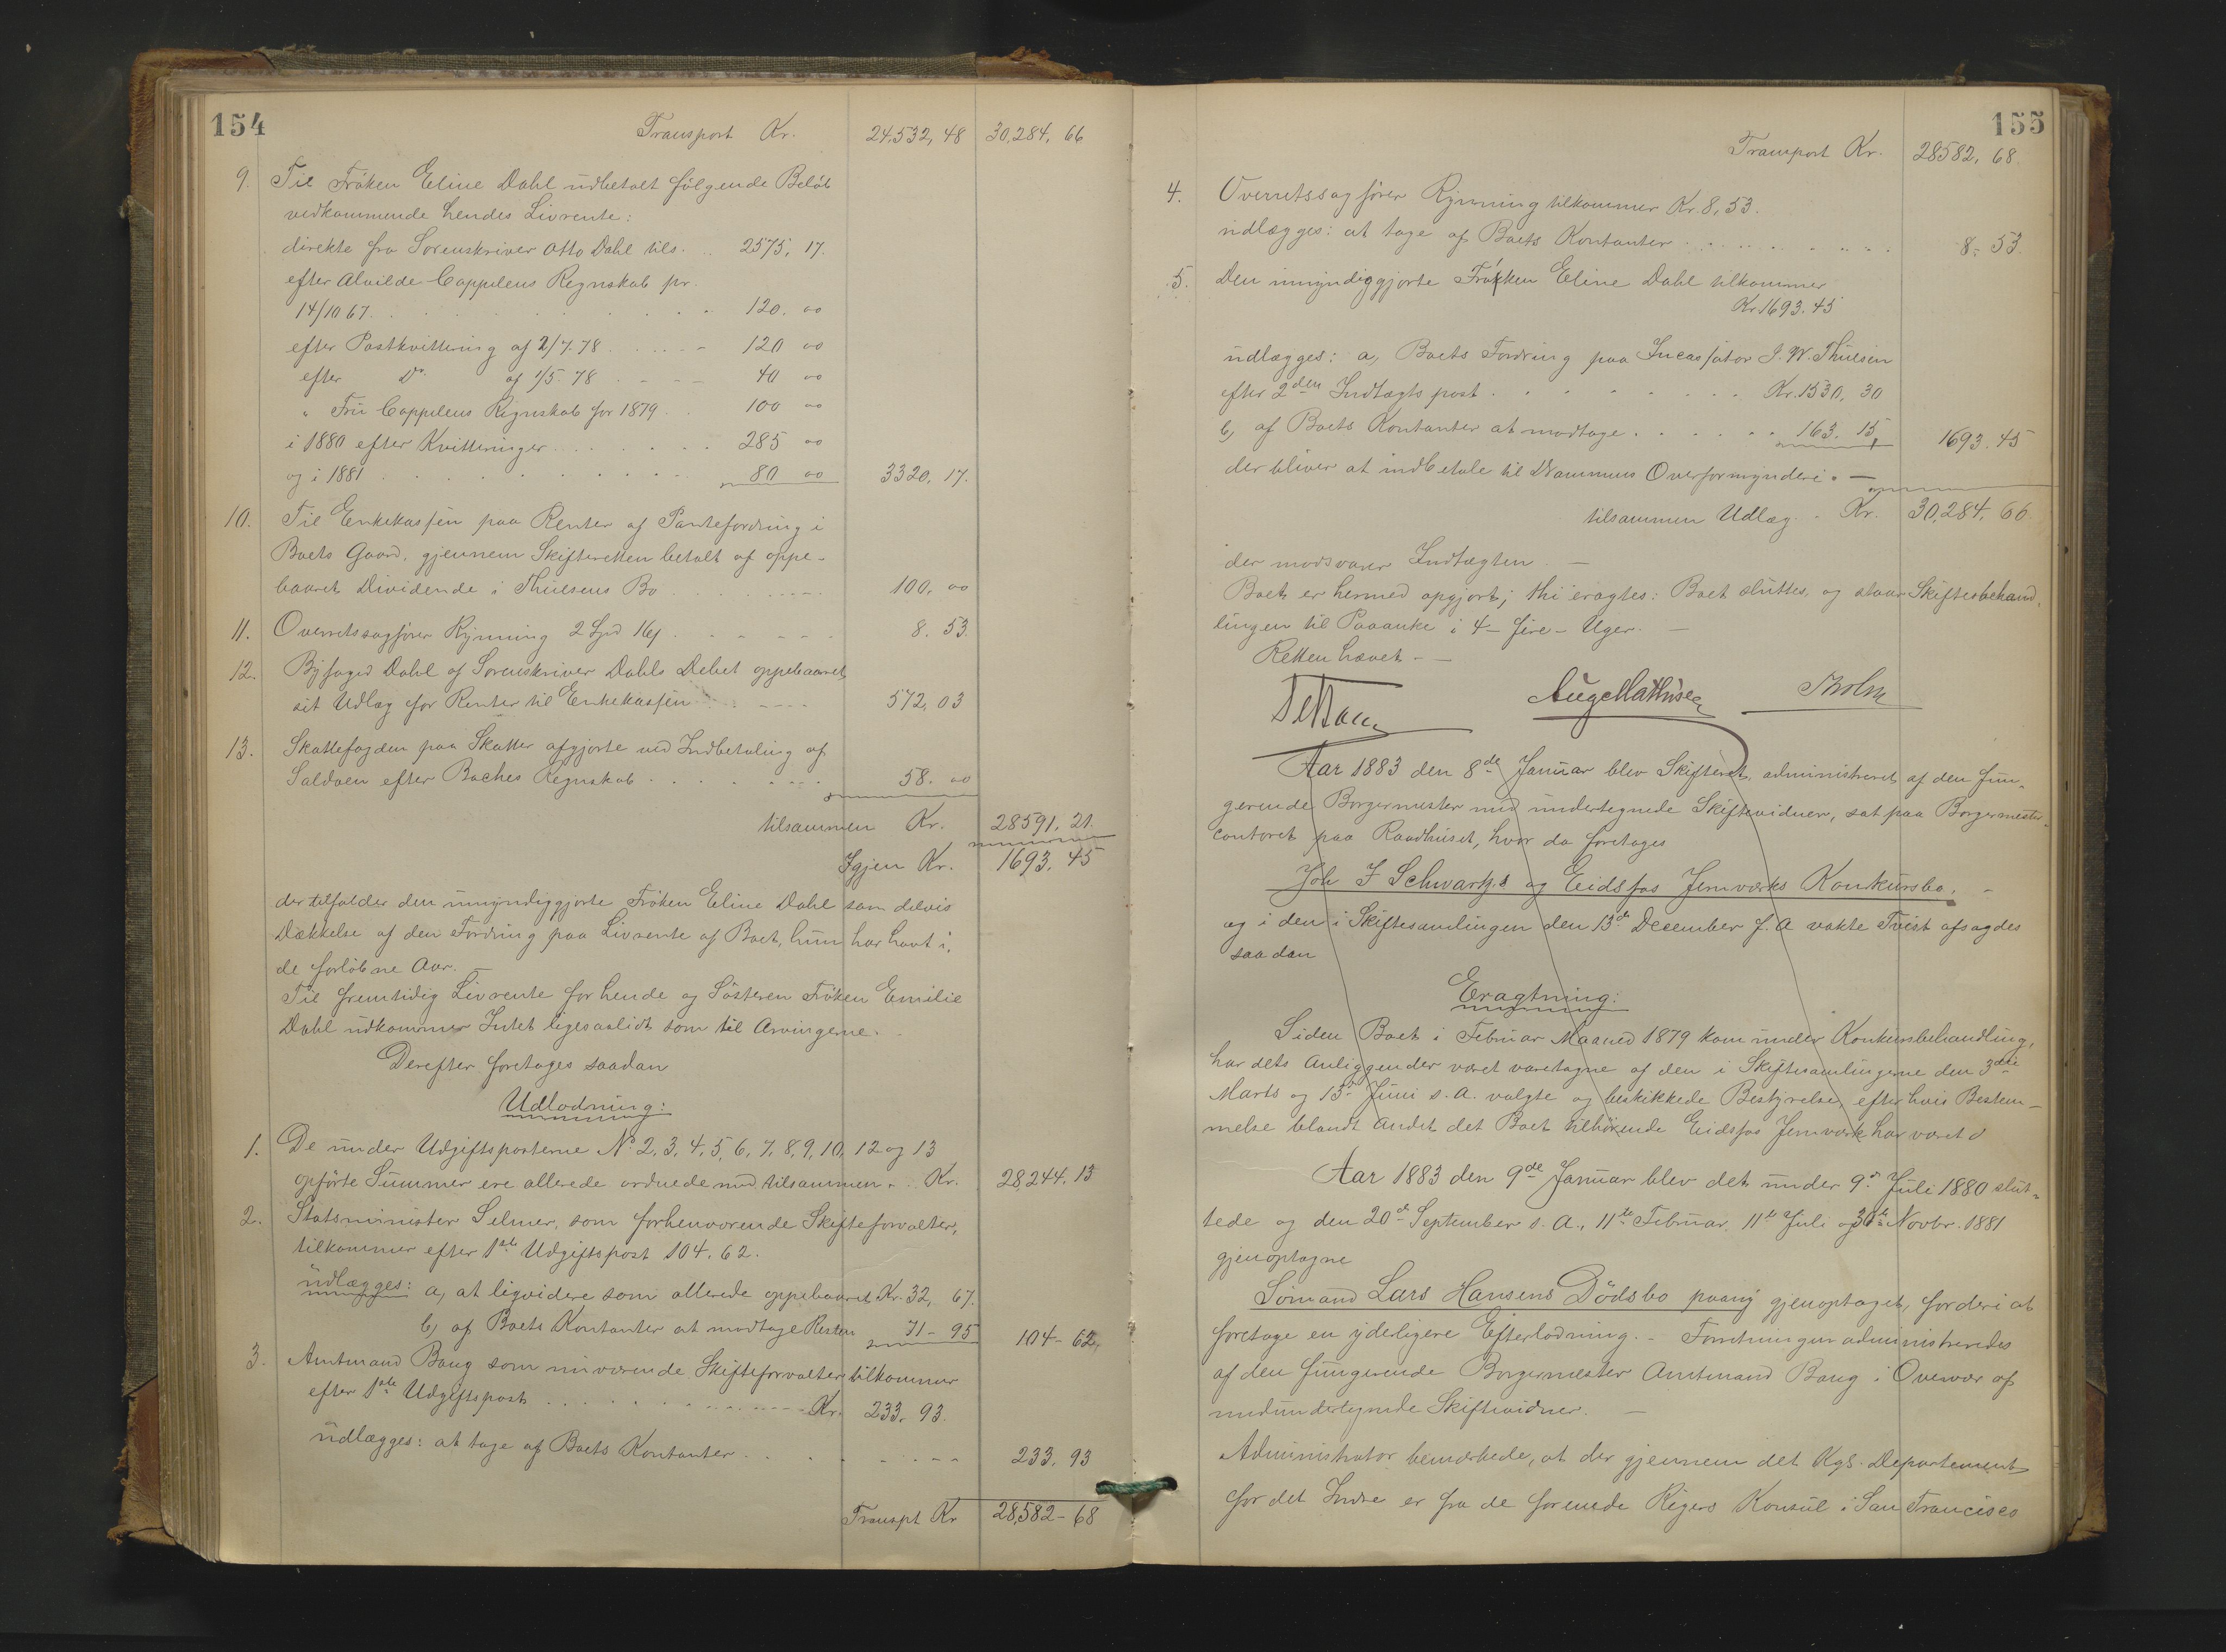 154
Transport Kr. 24,532,48 30,284,66
9. Til Fröken Eline Dahl udbetalt fölgende Belöb
vedkommende hendes Livrente:
direkte fra Sorenskriver Otto Dahl tils. .. 2575, 17.
efter Alvilde Cappelens Regnskab pr.
14/10 67. . . . . . . . . . . 120. 00
efter Postkvittering af 2/7. 78 . . . . . - 120 00
efter Do. af 1/5. 78 . - - - - 40 00
" Frü Cappelens Regnskab for 1879 . . 100 00
i 1880 efter Kvitteringer . . . . . . . 285 00
og i 1881 . . . . . . . . . 80 00 3320, 17.
10. Til Enkekassen paa Renter af Pantefordring i
Boets Gaard, gjennem Skifteretten betalt af oppe-
baaret Dividende i Thüesens Bo . . . . . . - - . 100, 00
11. Overretssagfører Rynning 2 Spd 16ß . - - - - - 8. 53.
12. Byfoged Dahl af Sorenskriver Dahls Debet oppebaaret
sit Udlæg for Renter til Enkekassen . . . - - - - 572, 03
13. Skattefogden paa Skatter afgjorte ved Indbetaling af
Saldoen efter Baches Regnskab . . . . . . - - . 58. 00
tilsammen Kr. 28591. 21.
Igjen Kr. 1693. 45
der tilfalder den ümyndiggjorte Fröken Eline Dahl som delvis
Dækkelse af den Fordring paa Livrente af Boet, hün har havt i
de forløbne Aar. —
Til fremtidig Livrente for hende og Søsteren Fröken Emilie
Dahl udkommer Intet ligesaalidt som til Arvingerne. -
Derefter foretages saadan
Udlodning:
1. De ünder Udgiftsposterne No 2, 3, 4, 5, 6, 7, 8, 9, 10, 12 og 13
opförte Summer ere allerede ordnede med tilsammen . . Kr. 28,244. 15
2. Statsminister Selmer, som forhenværende Skifteforvalter,
tilkommer efter 1ste Udgiftspost 104. 62.
üdlægges: a, at liqvidere som allerede oppebaaret Kr. 32, 67.
b, af Boets Kontanter at modtage Resten 71 - 95 104 - 62.
3. Amtmand Bang som nüværende Skifteforvalter tilkommer
efter 1ste Udgiftspost . . . . . . . . . . - - - - Kr. 233. 93.
üdlægges: at tage af Boets Kontanter . . . . - - - - - 233. 93
Transpt Kr 28,582 - 68
155
Transport Kr. 28582, 68.
4. Overretssagfører Rynning tilkommer Kr. 8, 53.
udlægges: at tage af Boets Kontanter . . . . . . . . . . 8. 53.
5. Den ümyndiggjorte Fröken Eline Dahl tilkommer
Kr 1693. 45
üdlægges: a, Boets Fordring paa Incassator J. W. Thüesen
efter 2den Indtægtspost . . . . . . . . . Kr. 1530, 30
b, af Boets Kontanter at modtage . . . . . . 163. 15, 1693. 45
der bliver at indbetale til Drammens Overformynderi. —
tilsammen Udlæg . . Kr. 30,284, 66.
der modsvarer Indtægten. —
Boet er hermed opgjort; thi eragtes: Boet sluttes, og staar Skiftesbehand-
lingen til Paaanke i 4 - fire - Uger. —
Retten hævet. —
Aug Mathisen Tholm
Aar 1883 den 8de Januar blev Skifteret, administreret af den fün-
gerende Borgermester med ündertegnede Skiftevidner, sat paa Borgermester-
contoret paa Raadhüset, hvor da foretoges
Joh F Schwartz's og Eidsfos Jernværks Konkürsbo. -
og i den i Skiftesamlingen den 13de December f. A. vakte Tvist afsagdes
saadan
Eragtning:
Siden Boet i Februar Maaned 1879 kom ünder Konkursbehandling,
har dets Anliggender været varetagne af den i Skiftesamlingerne den 3die
Marts og 13de Jüni s. A. valgte og beskikkede Bestyrelse, efter hvis Bestem-
melse blandt Andet det Boet tilhörende Eidsfos Jernværk har været d
Aar 1883 den 9de Januar blev det ünder 9de Juli 1880 slüt-
tede og den 20de September s. A., 11te Februar, 11te Juli og 30te Novbr. 1881
gjenoptagne
Sömand Lars Hansens Dödsbo paany gjenoptaget, for deri at
foretage en yderligere Efterlodning. - Forretningen administreredes
af den füngerende Borgermester Amtmand Bang i Overvær af
medündertegnede Skiftevidner. —
Administrator bemærkede, at der gjennem det Kgl. Departement
for det Indre er fra de forenede Rigers Konsül i San Francisco